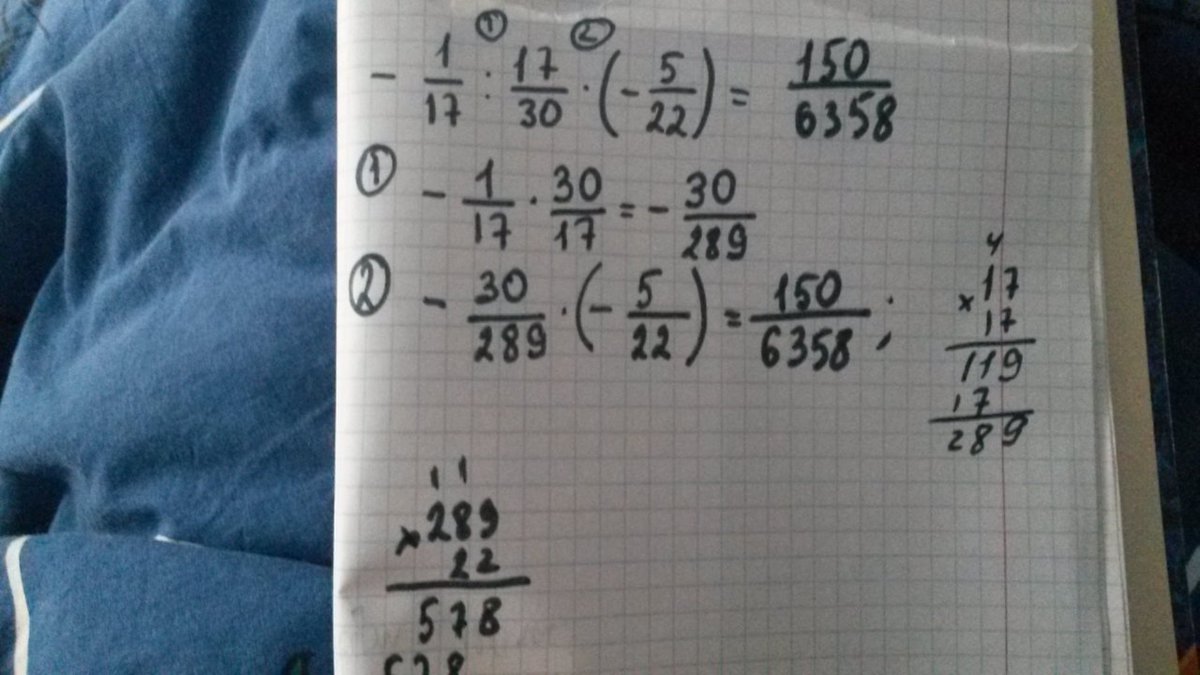 ① ②
- 1/17 : 17/30 · (- 5/22) = 150/6358
① - 1/17 · 30/17 = - 30/289
② - 30/289 · (- 5/22) = 150/6358 ;
4
× 17
17
119
17
289
1 1
× 289
22
578
578